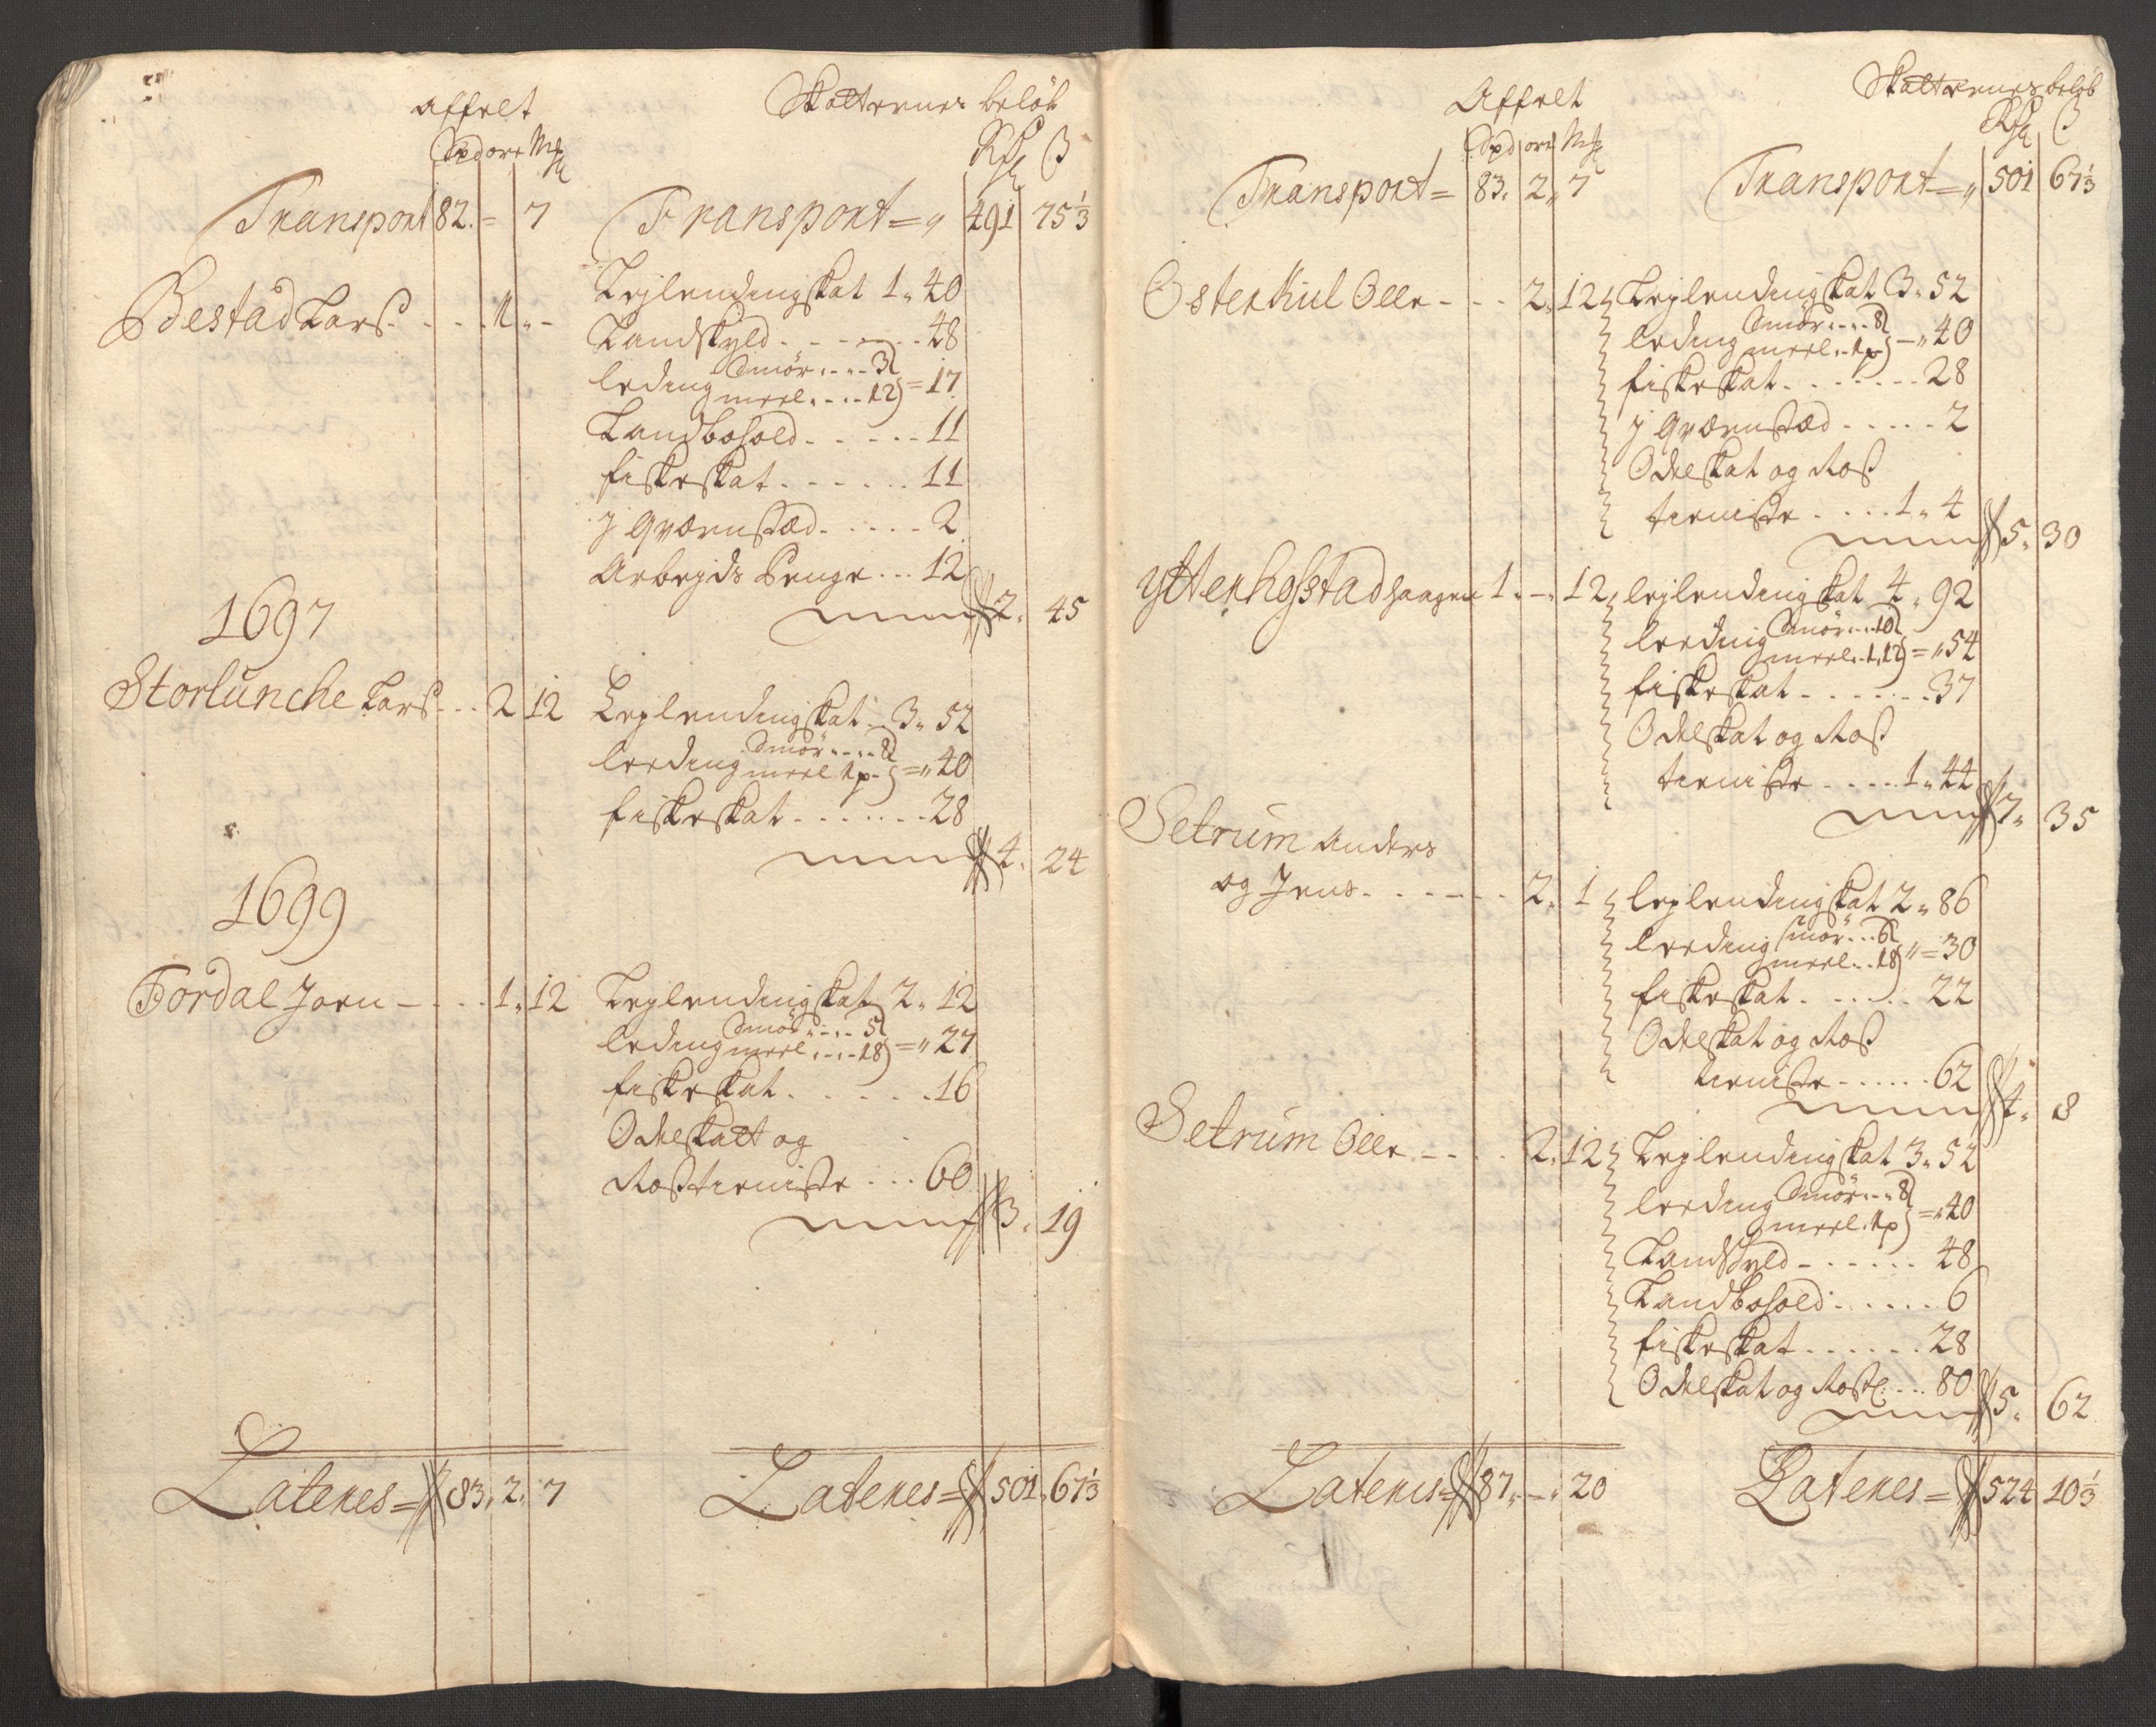 Affelt Skatternes beløb
Spd ore Mk Rdr β
Transport 82. = 7 Transport = „ 491 75 1/3
Bestad Lars - - - 1 „ - Leylendingskat 1 „ 40
Landskyld - - - - 48
leding Smør - - - 3 meel - - - 12 = 17
Landbohold - - - - - 11
fiskeskat - - - - - - 11
J Qværnsted - - - - - 2
Arbejds Penge - - - 12
2. 45
1697
Storlunche Lars - - 2 12 Leylendingskat - 3 „ 52
leeding Smør - - - 8 meel 1 p - = „ 40
fiskeskat - - - - - - 28
4. 24
1699
Fordal Joen - - - - 1 „ 12 Leylendingskat 2 „ 12
leding Smør - - - 5 meel - - - 18 = „ 27
fiskeskat - - - - - - 16
Odelskatt og
Rostieniste - - - 60
3. 19
Lateres = 83. 2. 7 Lateres = 501. 67 1/3
Affelt Skatternes beløb
Spd ore Mk Rdr β
Transport = 83. 2 „ 7 Transport = „ 501 67 1/3
Osterkul Olle - - - 2 „ 12 Leylendingskat 3 „ 52
leding Smør - - - 8 meel - 1 p - „ 40
fiskeskat - - - - - - - 28
J Qværnsted - - - - - 2
Odelskat og Ros
tieniste - - - - 1 „ 4
5. 30
Ytterhofstad Haagen 1. - . 12 leylendingskat 4 „ 92
leeding Smør - - 10 meel - 1 „ 12 = „ 54
fiskeskat - - - - - - - 37
Odelskat og Ros
tieniste - - - - 1 „ 44
7. 35
Setrum Anders
og Jens - - - - - - 2. 1 leylendingskat 2 „ 86
leeding smør - - - 6 meel - - 18 „ = 30
fiskeskat - - - - - - 22
Odelskat og Ros
tieniste - - - - - - 62
4. 8
Setrum Olle - - - - 2. 12 Leylendingskat 3 „ 52
leeding Smør - - - 8 meel - 1 p = „ 40
Landskyld - - - - - - 48
Landbohold - - - - - - 6
fiskeskat - - - - - - 28
Odelskat og Rost - - - 80
5. 62
Lateres = 87. - . 20 Lateres = 524 10 1/3